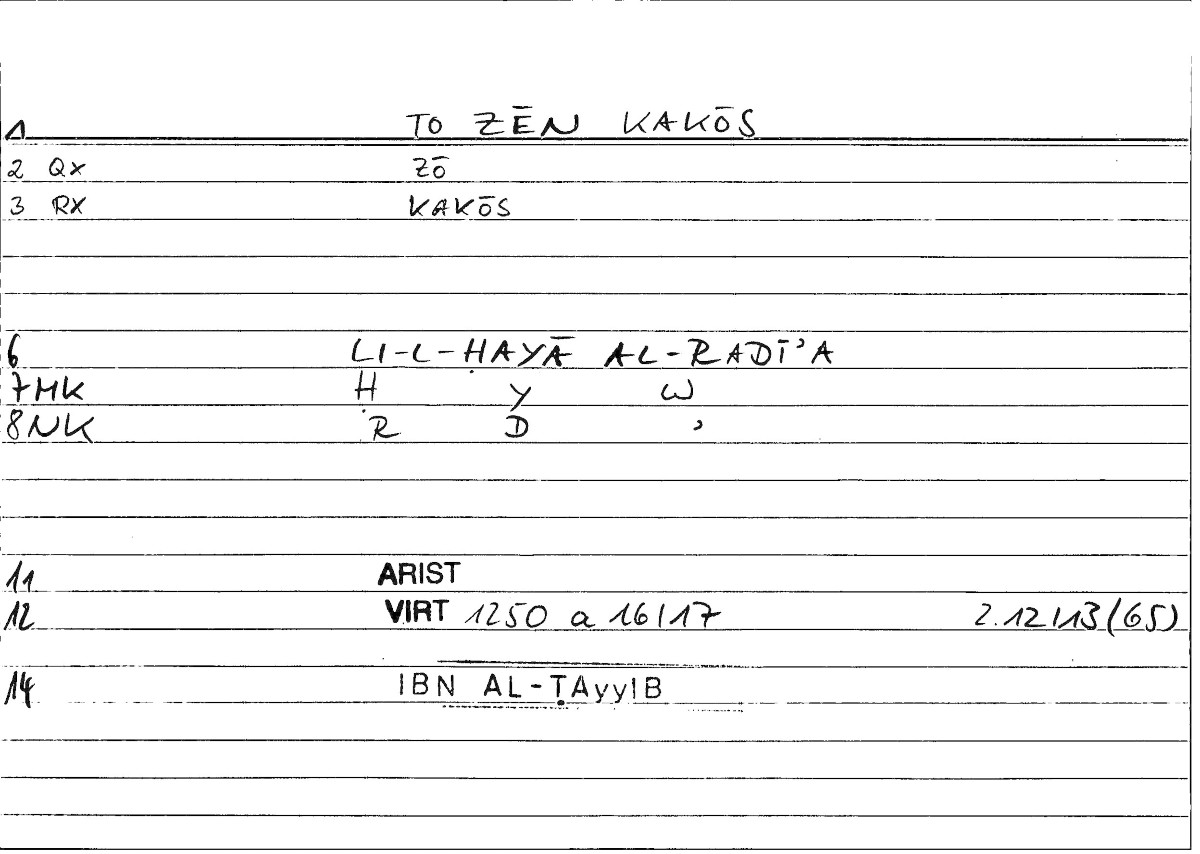 1 TO ZĒN KAKŌS
2 QX ZŌ
3 RX KAKŌS
6 LI-L-ḤAYĀ AL-RADĪ'A
7 MK Ḥ Y W
8 NK R D '
11 ARIST
12 VIRT 1250 a 16/17 2.12/13 (65)
14 IBN AL-ṬAyyIB